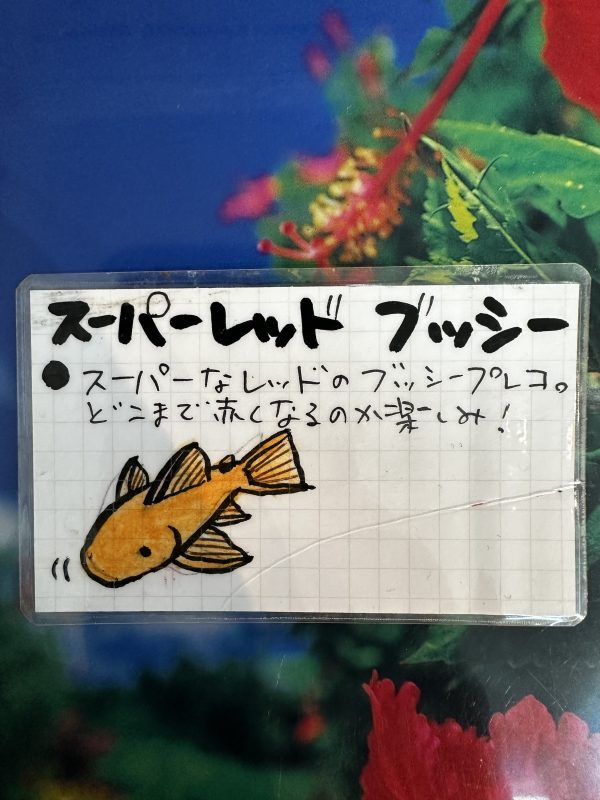 スーパーレッド ブッシー
● スーパーなレッドのブッシープレコ。
どこまで赤くなるのか楽しみ!